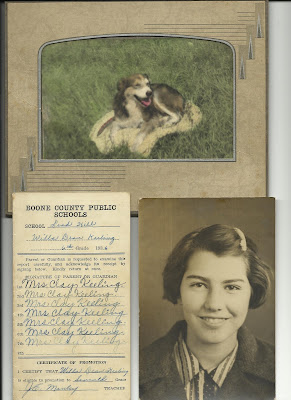 BOONE COUNTY PUBLIC
SCHOOLS
SCHOOL
Willa Dean Keeling
6th Grade 193
Parent or Guardian is requested to examine this
report carefully, and acknowledge its receipt by
signing below. Kindly return at once.
SIGNATURE OF PARENT OR GUARDIAN
Mrs Clay Keeling
Mrs Clay Keeling
Mrs Clay Keeling
Mrs Clay Keeling
Mrs Clay Keeling
Mrs Clay Keeling
Mrs Clay Keeling
CERTIFICATE OF PROMOTION
I CERTIFY THAT Willa Dean Keeling
is eligible to promotion to Seventh Grade
TEACHER